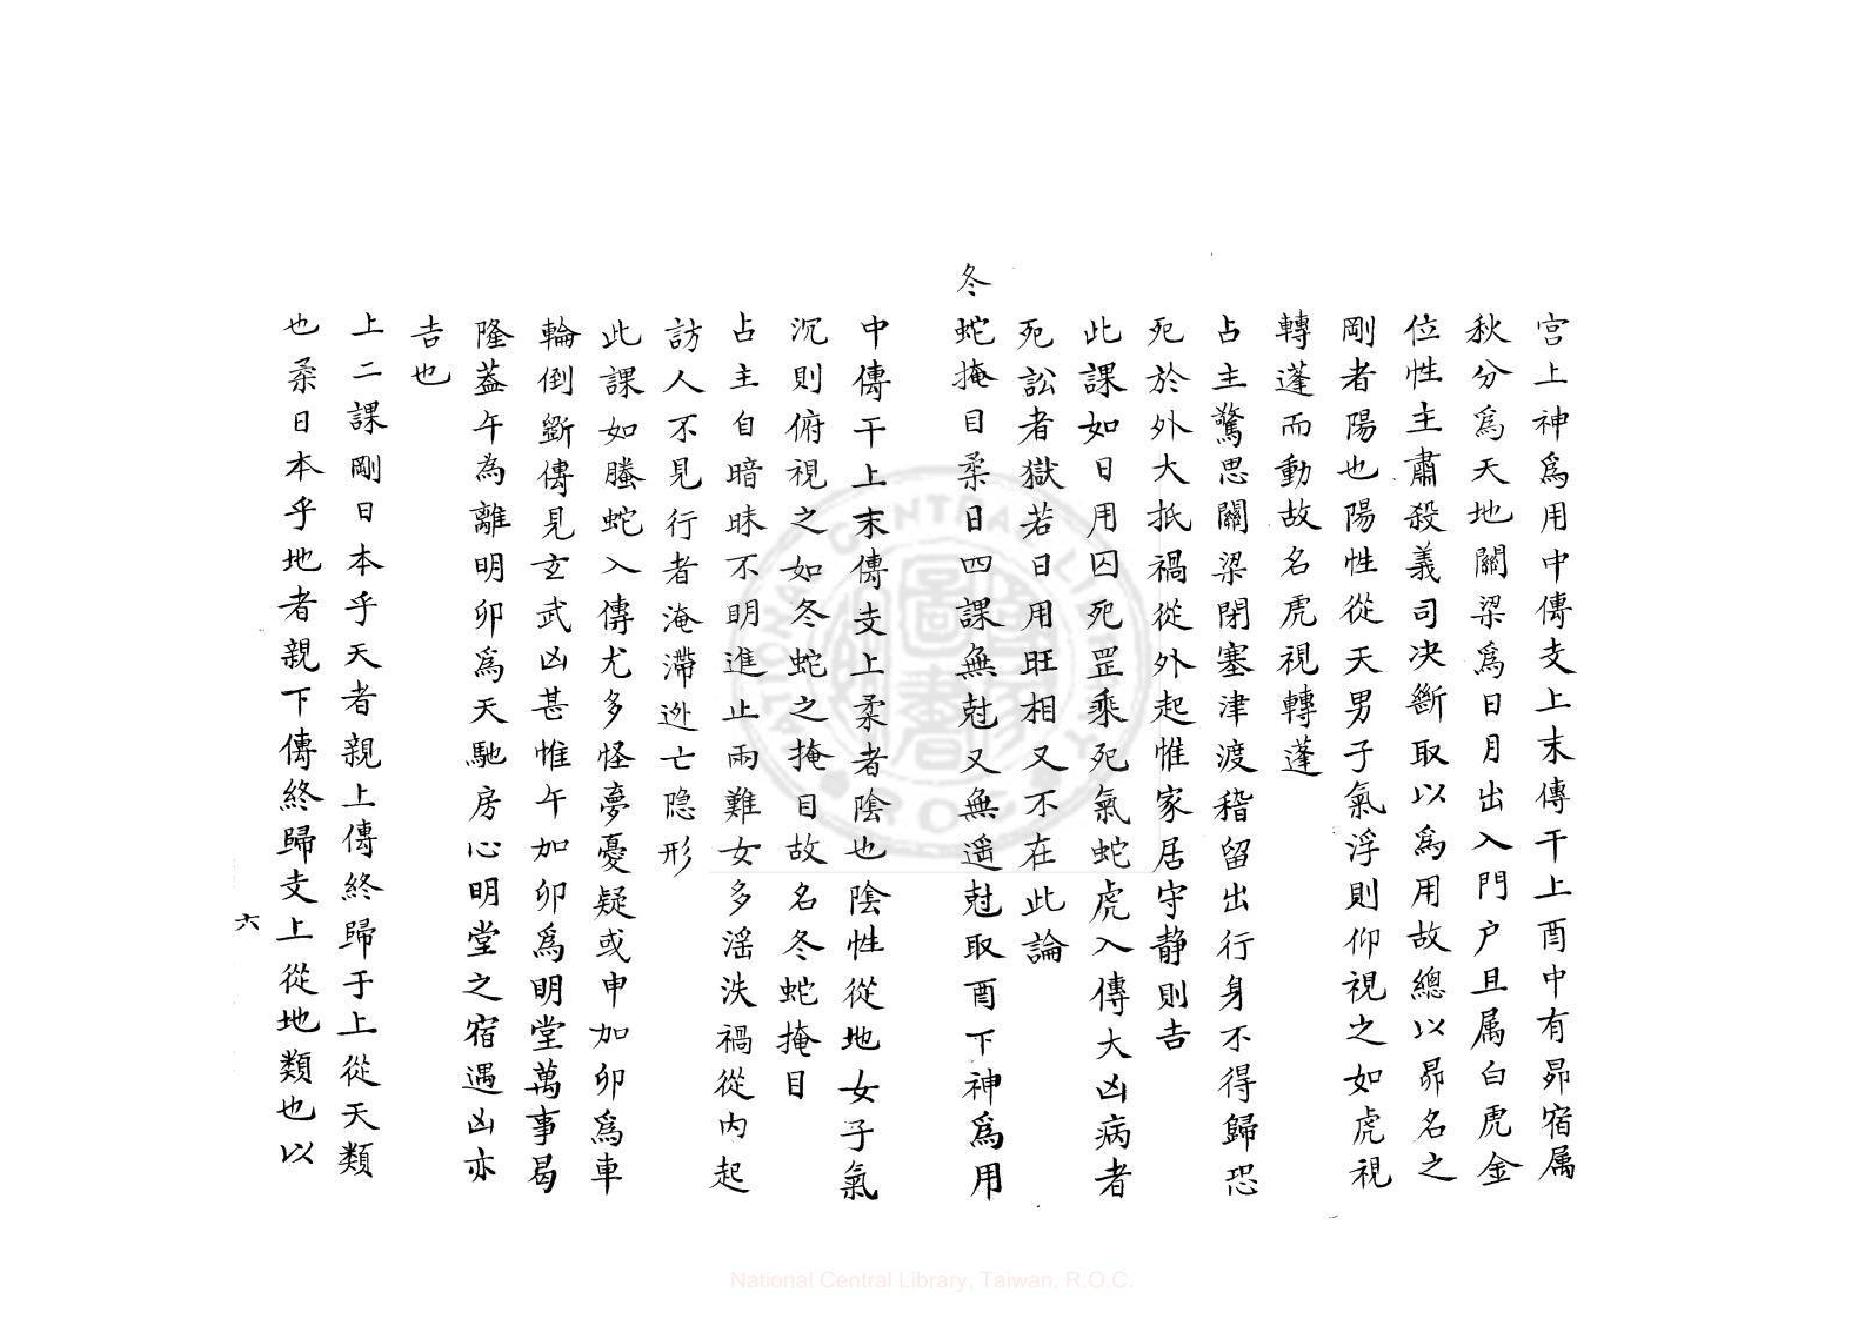 宫上神爲用中傳支上末傳干上酉中有昴宿属
秋分爲天地關梁爲日月出入門户且属白虎金
位性主肅殺義司决斷取以爲用故總以昴名之
剛者陽也陽性從天男子氣浮則仰視之如虎視
轉蓬而動故名虎視轉蓬
占主驚思關梁閉塞津渡稽留出行身不得歸恐
死於外大抵禍從外起惟家居守静則吉
此課如日用囚死罡乘死氣蛇虎入傳大凶病者
死訟者獄若日用旺相又不在此論
冬蛇掩目柔日四課無尅又無遥尅取酉下神爲用
中傳干上末傳支上柔者陰也陰性從地女子氣
沉則俯視之如冬蛇之掩目故名冬蛇掩目
占主自暗昧不明進止兩難女多滛泆禍從内起
訪人不見行者淹滯迯亡隐形
此課如螣蛇入傳尤多怪夢憂疑或申加卯爲車
輪倒斷傳見玄武凶甚惟午加卯爲明堂萬事曷
隆蓋午為離明卯爲天馳房心明堂之宿遇凶亦
吉也
上二課剛日本乎天者親上傳終歸于上從天類
也柔日本乎地者親下傳終歸支上從地類也以
六
National Central Library, Taiwan, R.O.C.